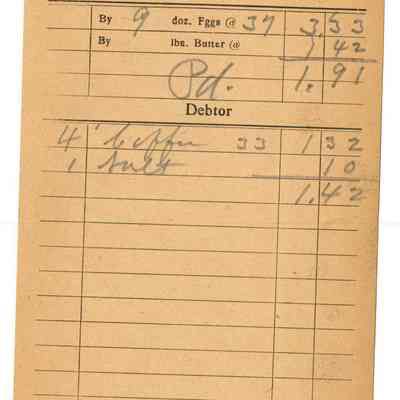 By 9 doz. Eggs @ 37 3.33
By lbs. Butter @ 1 42
Pd. 1.91
Debtor
4 Coffee 33 1 32
1 Salt 10
1.42